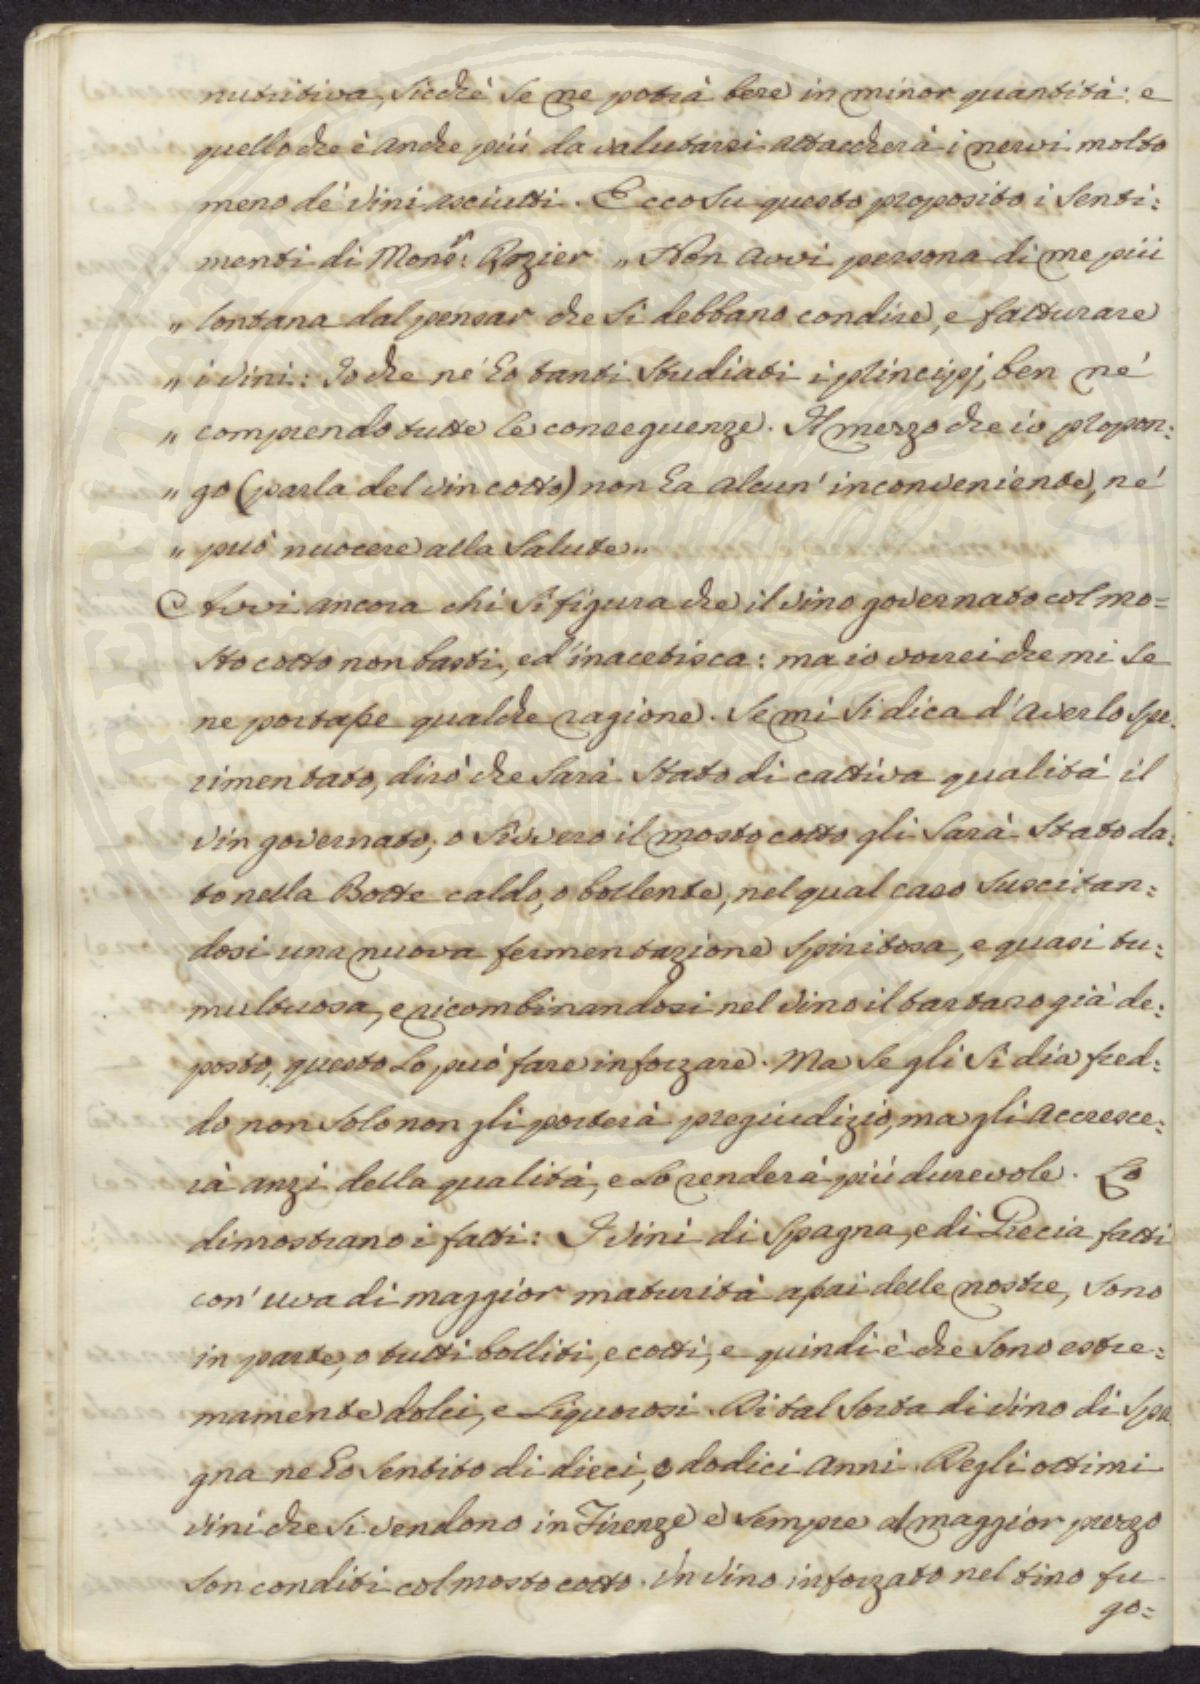 nutritiva, sicché se ne potrà bere in minor quantità: e
quello che è anche più da valutarsi attaccherà i nervi molto
meno de' vini asciutti. Ecco su questo proposito i senti:
menti di Mons.r: Rozier „ Non avvi persona di me più
„ lontana dal pensar che si debbano condire, e fatturare
„ i vini: Io che nè ho tanti studiati i principj, ben nè
„ comprendo tutte le conseguenze. Il mezzo che io propon:
„ go (parla del vin cotto) non ha alcun' inconveniente, nè
„ può nuocere alla salute „
Avvi ancora chi si figura che il vino governato col mo=
sto cotto non basti, ed' inacetisca: ma io vorrei che mi se
ne portasse qualche ragione. Se mi si dica d'averlo spe:
rimentato, dirò che sarà stato di cattiva qualità il
vin governato, o sivvero il mosto cotto gli sarà stato da:
to nella Botte caldo, o bollente, nel qual caso suscitan:
dosi una nuova fermentazione spiritosa, e quasi tu:
multuosa, e ricombinandosi nel vino il tartaro già de:
posto, questo lo può fare inforzare. Ma se gli si dia fred:
do non solo non gli porterà pregiudizio, ma gli accresce:
rà anzi della qualità, e lo renderà più durevole. Lo
dimostrano i fatti: I vini di Spagna, e di Grecia fatti
con' uva di maggior maturità assai delle nostre, sono
in parte, o tutti bolliti, e cotti, e quindi è che sono estre:
mamente dolci, e liquorosi. Di tal sorta di vino di Spa
gna ne ho sentito di dieci, o dodici anni. Degli ottimi
vini che si vendono in Firenze e sempre al maggior prezzo
son conditi col mosto cotto. Un vino inforzato nel tino fu
go=